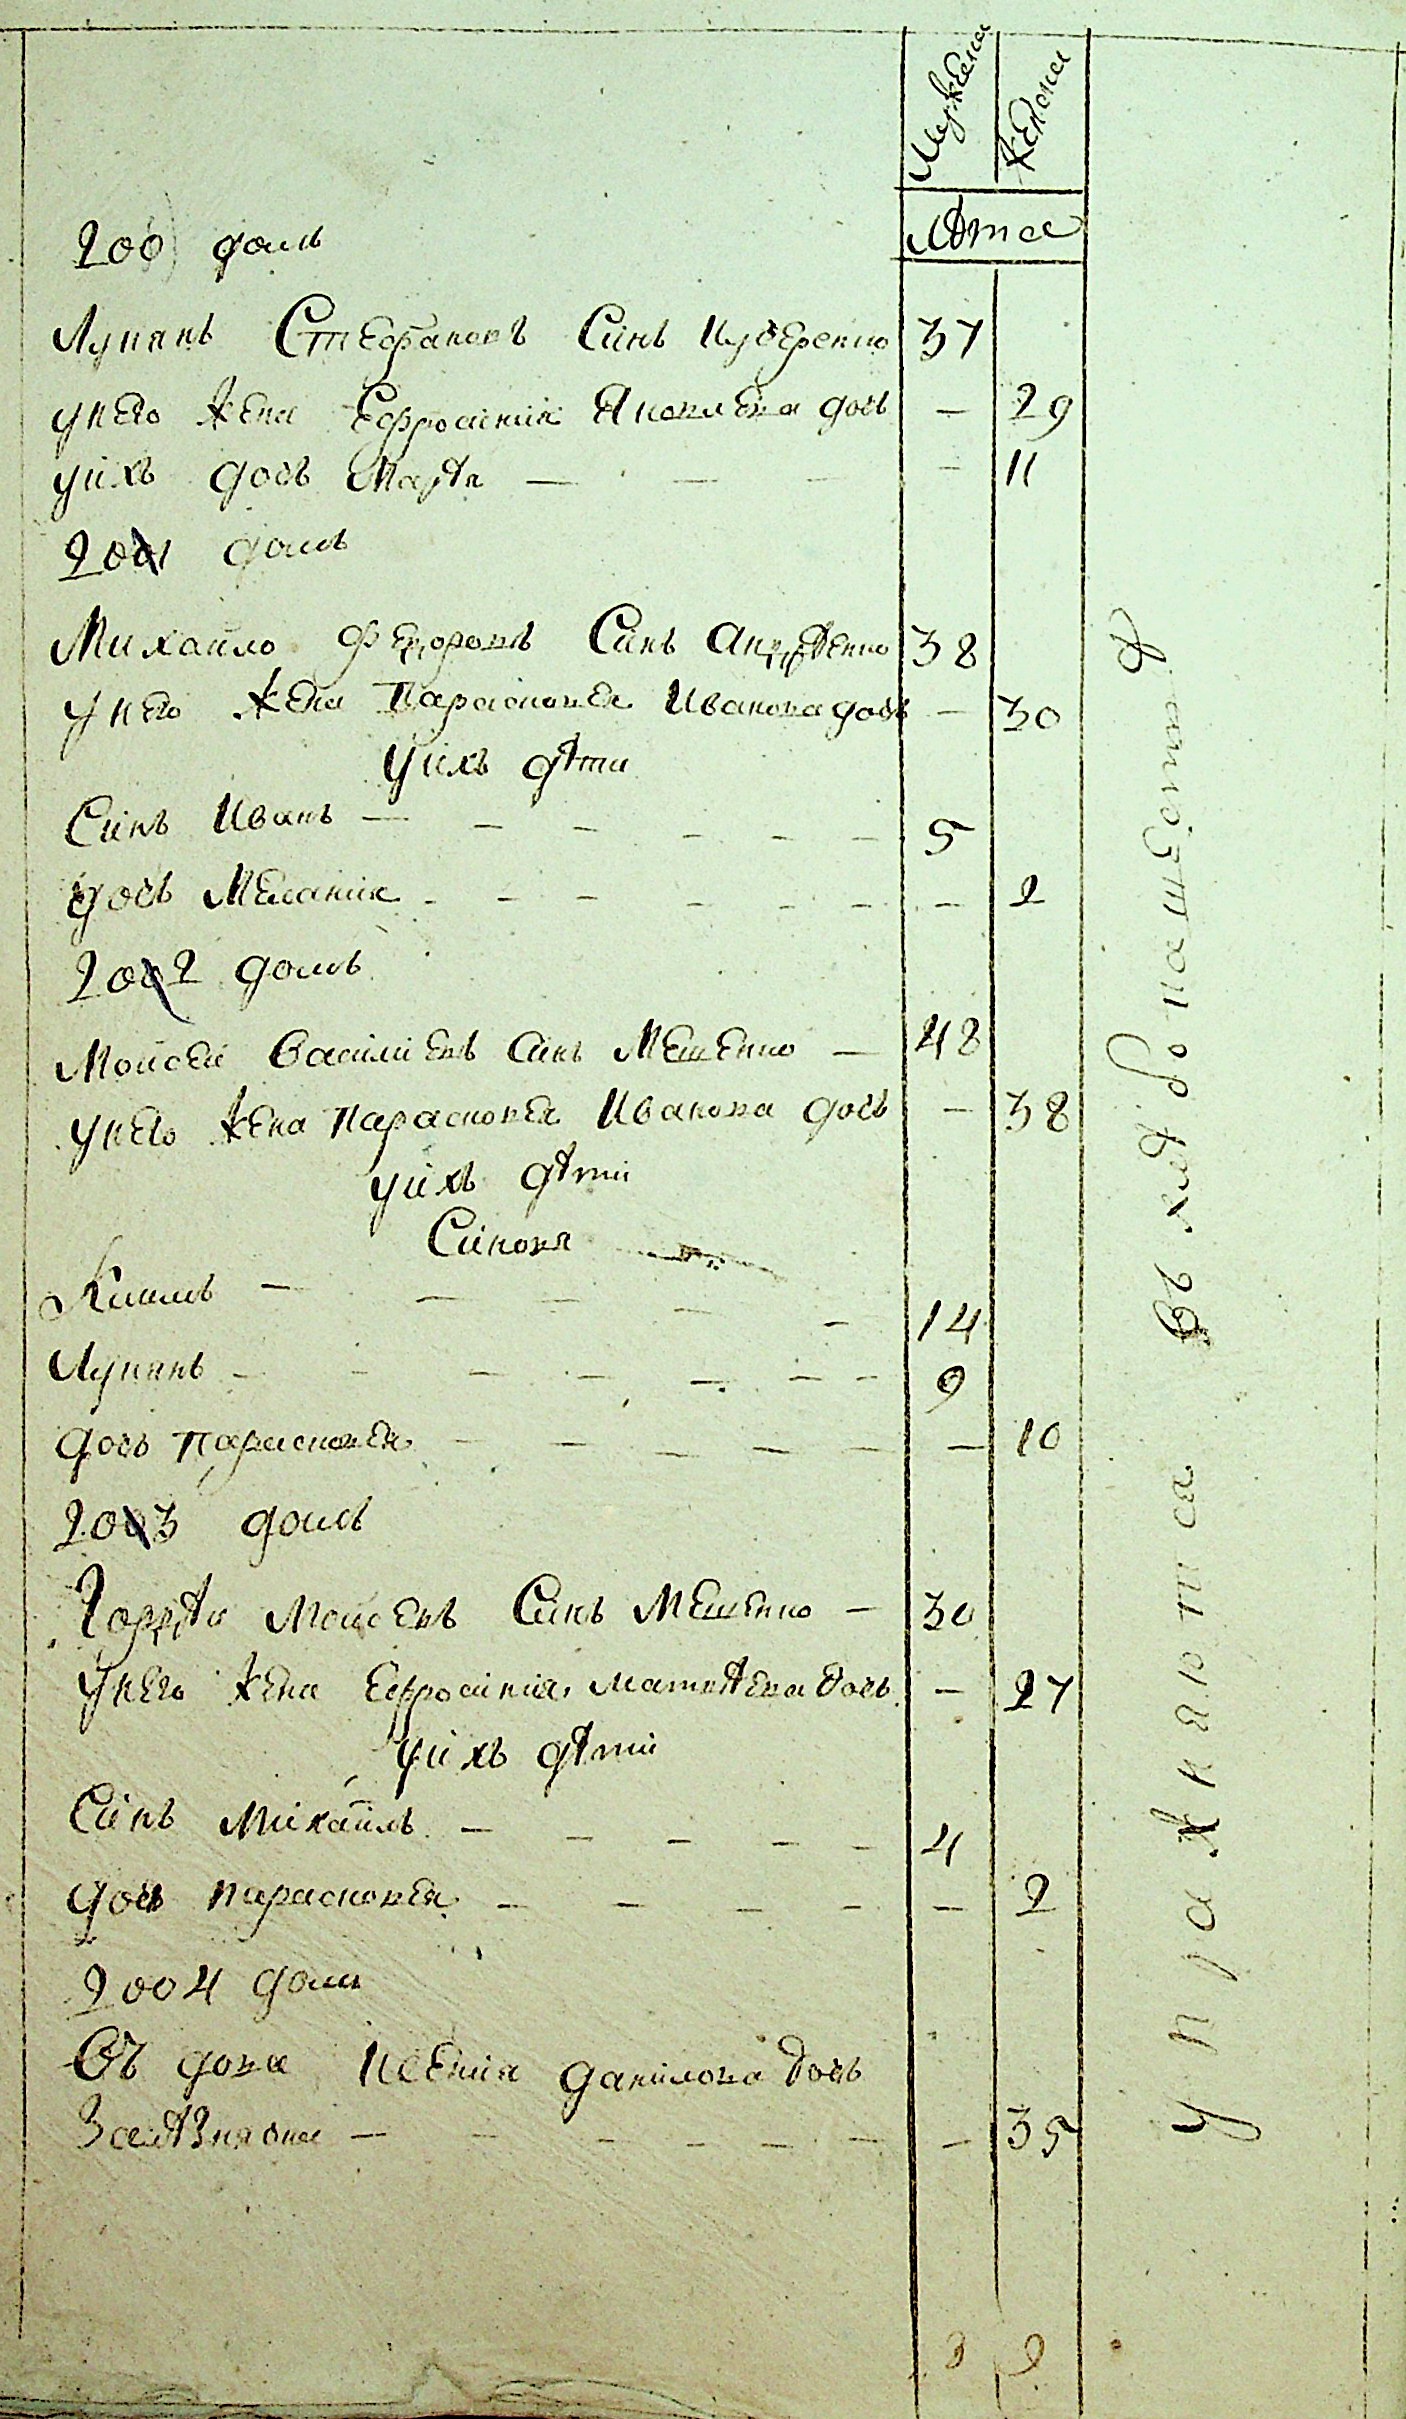 Мужеска
Женска
лѣта
200 домъ
Лукянъ Стефановъ Синъ Кучеренко 37
у него жена Ефросинія Яковлева дочь — 29
у ихъ дочь Марѣя — — — — 11
2001 домъ
Михайло Федоровъ Синъ Андрѣенко 38
у него жена Парасковея Иванова дочь — 30
у ихъ дѣти
Синъ Иванъ — — — — — — 5
дочь Меланія — — — — — — — 2
2002 домъ
Мойсей Василиевъ синъ Мешенко — 48
у него жена Парасковея Иванова дочь — 38
у ихъ дѣти
Синовя
Климъ — — — — — 14
Лукянъ — — — — — — — 9
дочь Парасковея — — — — — — 10
2003 домъ
Гордѣй Мойсеевъ Синъ Мешенко — 30
у него жена Ефросинія Матвѣева дочь — 27
у ихъ дѣти
Синъ Михаилъ — — — — — 4
дочь Парасковея — — — — — — 2
2004 домъ
Въдова Ксенія Данилова дочь
Залѣзнякова — — — — — — — — 35
8 9
упражняютса въ хлѣбопашествѣ